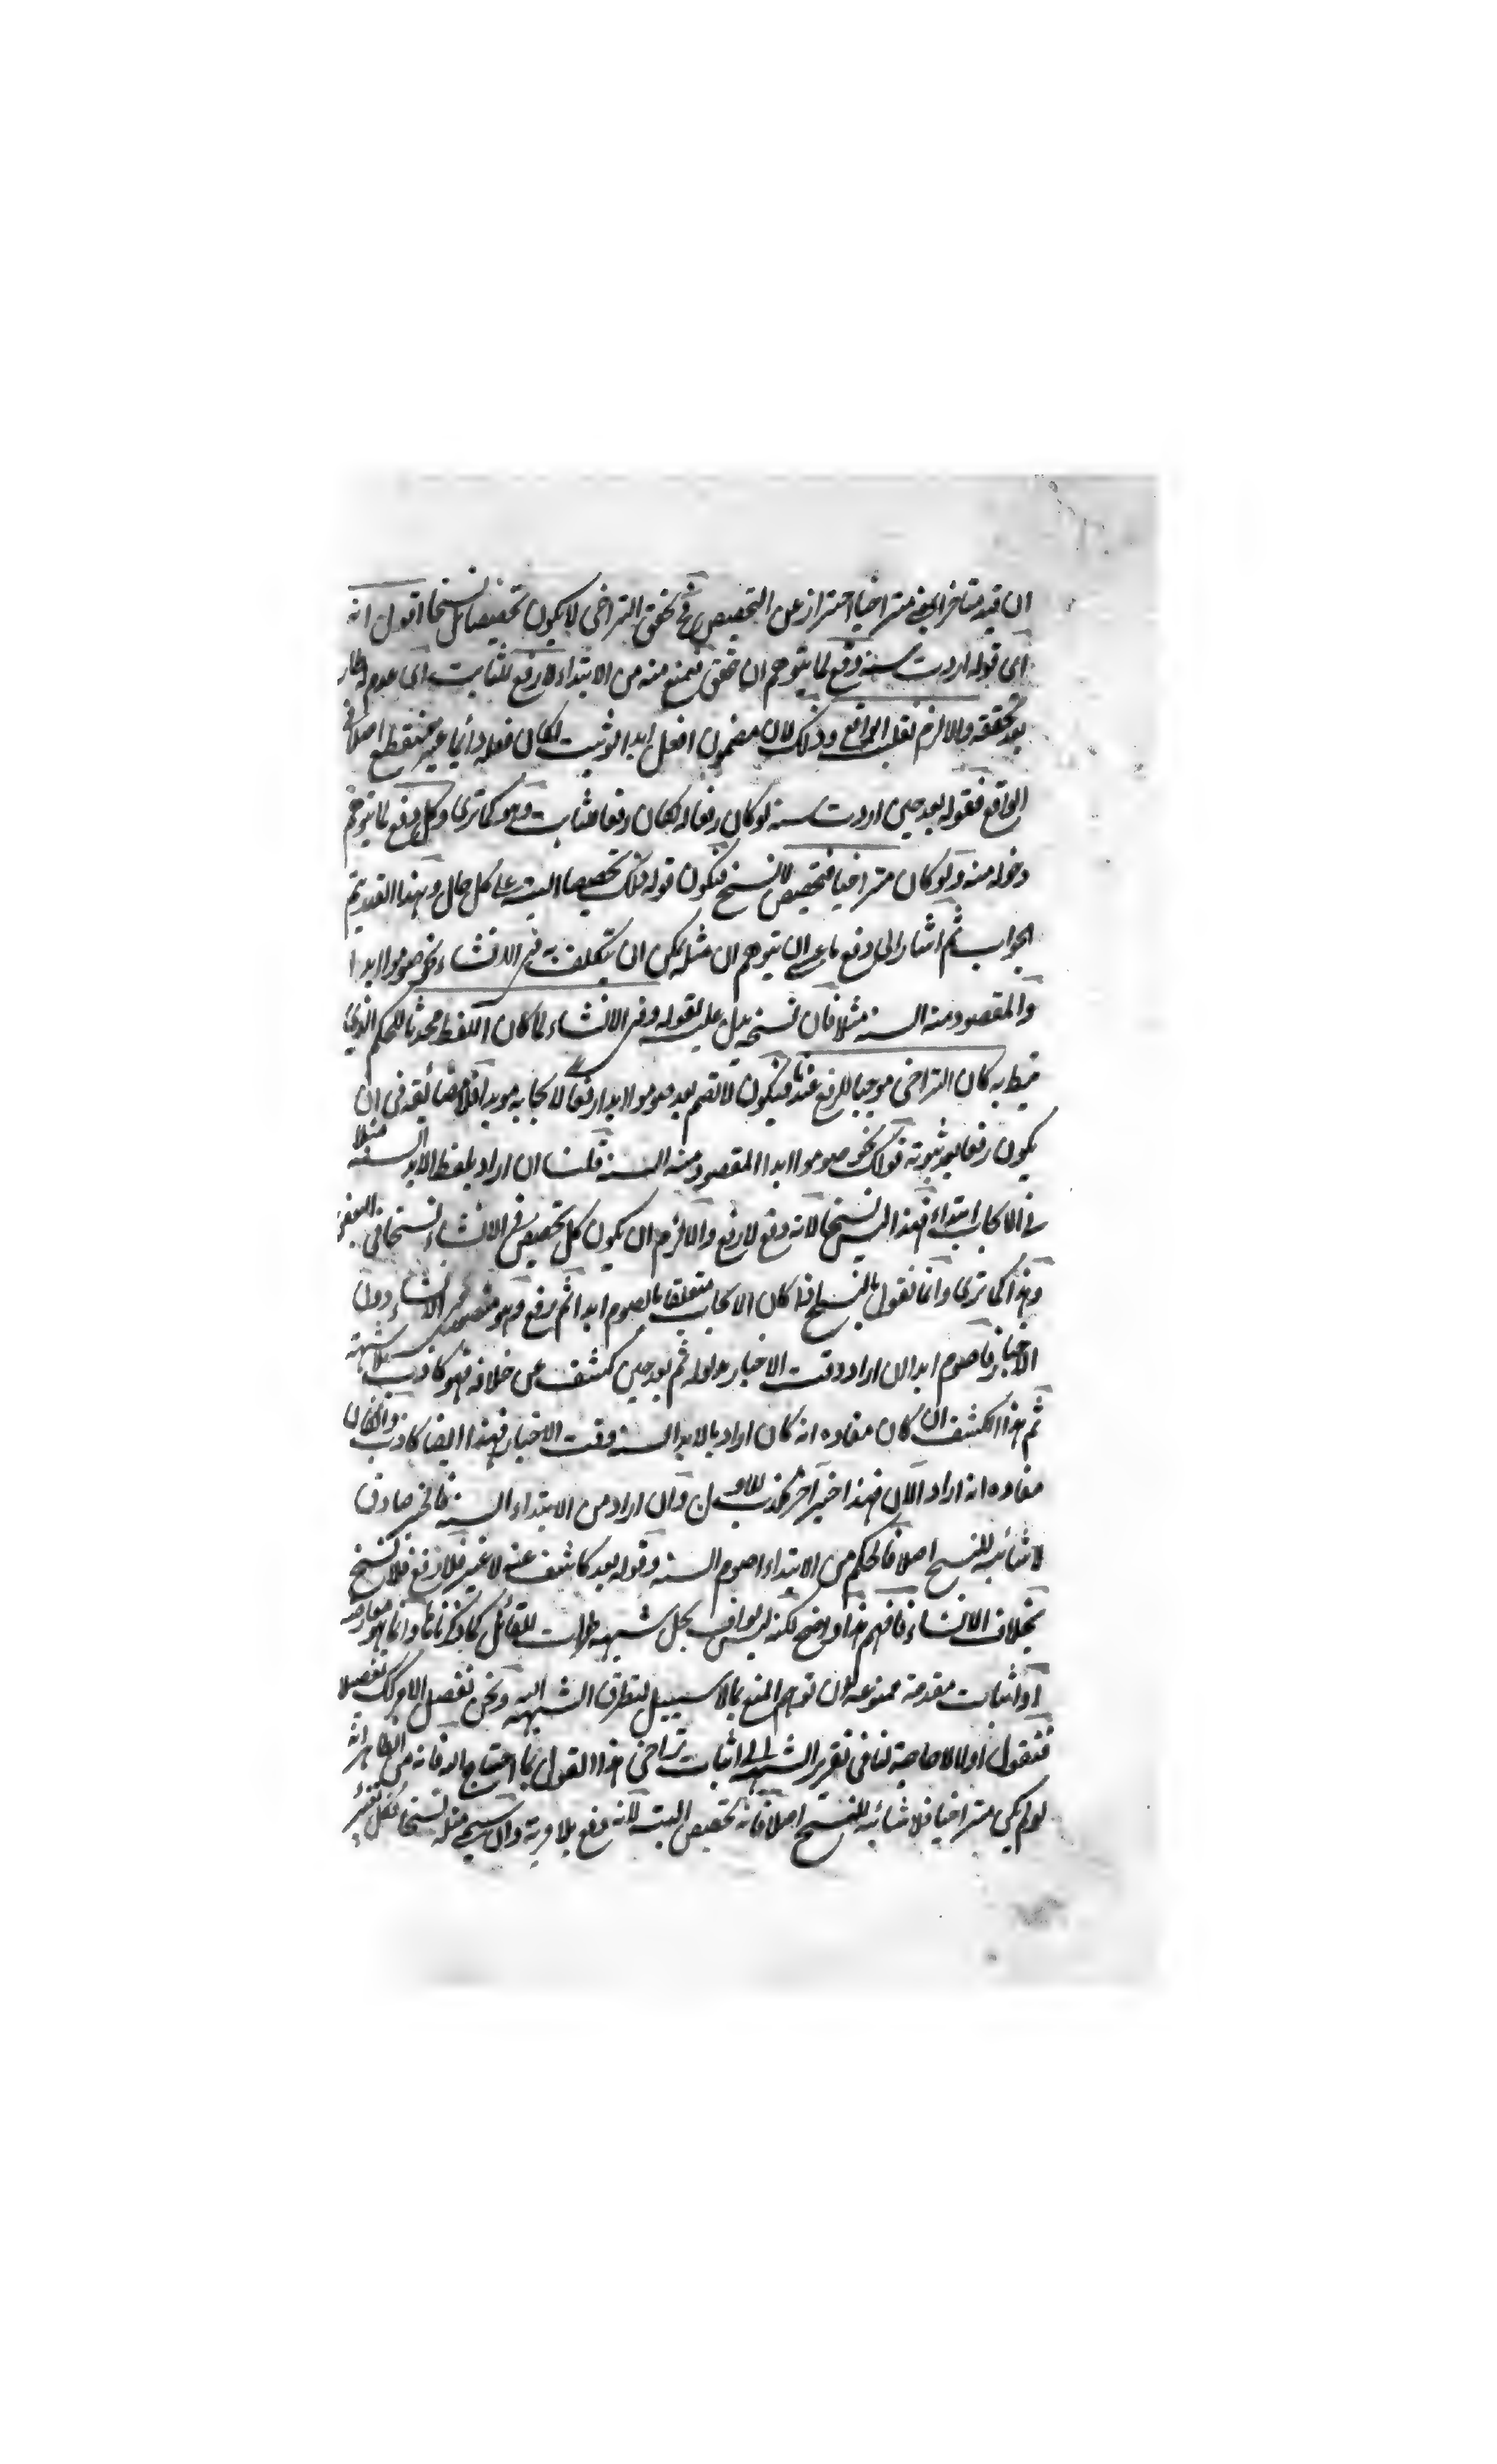 ان قيد متاخر اي في متراخيا احتراز عن التخصيص في تحقق التراخي لا يكون تخصيصا بل نسخا اقول انه
اي قوله اردت سنة دفع لما يتوهم ان تحقق فمنع منه من الابتداء لا رفع للثابت اي عدم
بعد تحققه والا لزم تقلب الواقع وذلك لان مضمون افعل ابدا لو ثبت لكان فعله دائما غير منقطع اصلا في
الواقع فقوله بعد حين اردت سنة لو كان رفعا لكان رفعا لثابت وهو كما ترى وكل دفع لما يتوهم
دخوله منه ولو كان متراخيا فتخصيص لا نسخ فيكون قوله ذلك تخصيصا البتة على كل حال وبهذا القدر يتم
الجواب ثم اشار الى دفع ما عسى ان يتوهم ان مثله يمكن ان يتكلف به في الانشاء نحو صوموا ابدا
والمقصود منه السنة مثلا فان نسخه يدل عليه بقوله وفي الانشاء لما كان اللفظ محدثا للحكم الذي
نيط به كان التراخي موجبا للرفع عندنا فيكون لا تصم بعد صوموا ابدا رفعا لايجابه مؤبدا فلا مضائقة في ان
يكون رفعا بعد ثبوته قولك نحو صوموا ابدا المقصود منه السنة قلنا ان اراد بلفظ الابد السنة مثلا
في الايجاب ابتداء فهذا ليس نسخا لانه دفع لا رفع والا لزم ان يكون كل تخصيص في الانشاء نسخا في
وهذا كما ترى وانما نقول بالنسخ اذا كان الايجاب متعلقا بالصوم ابدا ثم رفع وهو متصور في الانشاء دون
الاخبار فاصوم ابدا ان اراد وقت الاخبار مدلوله ثم بعد حين كشف عن خلافه فهو كاذب بلا شبهة
ثم هذا الكشف ان كان مفاده انه كان اراد بالابد السنة وقت الاخبار فهذا ايضا كاذب وان كان
مفاده انه اراد الآن فهذا خبر آخر مكذب للاول وان اراد من الابتداء السنة فالخبر صادق
لا شائبة للنسخ اصلا فالحكم من الابتداء اصوم السنة وقوله بعد كاشف عنه لا غير فلا رفع فلا نسخ
بخلاف الانشاء فافهم هذا واضح لكنه ليس بواف بحل شبهة طرأت للقائل كما ذكرنا وانما هو معارضة
او اثبات مقدمة ممنوعة لان توهم المنع مما لا سبيل لتطرق الشبهة اليه ونحن نفصل الامر لك تفصيلا
فنقول اولا لا حاجة لنا في تقرير الشبهة الى اثبات تراخي هذا القول بما احتاج اليه فانه من الظاهر انه
لو لم يكن متراخيا فلا شائبة للنسخ اصلا فانه تخصيص البتة لانه دفع بلا مرية وان سمي مثله نسخا فكل تغيير